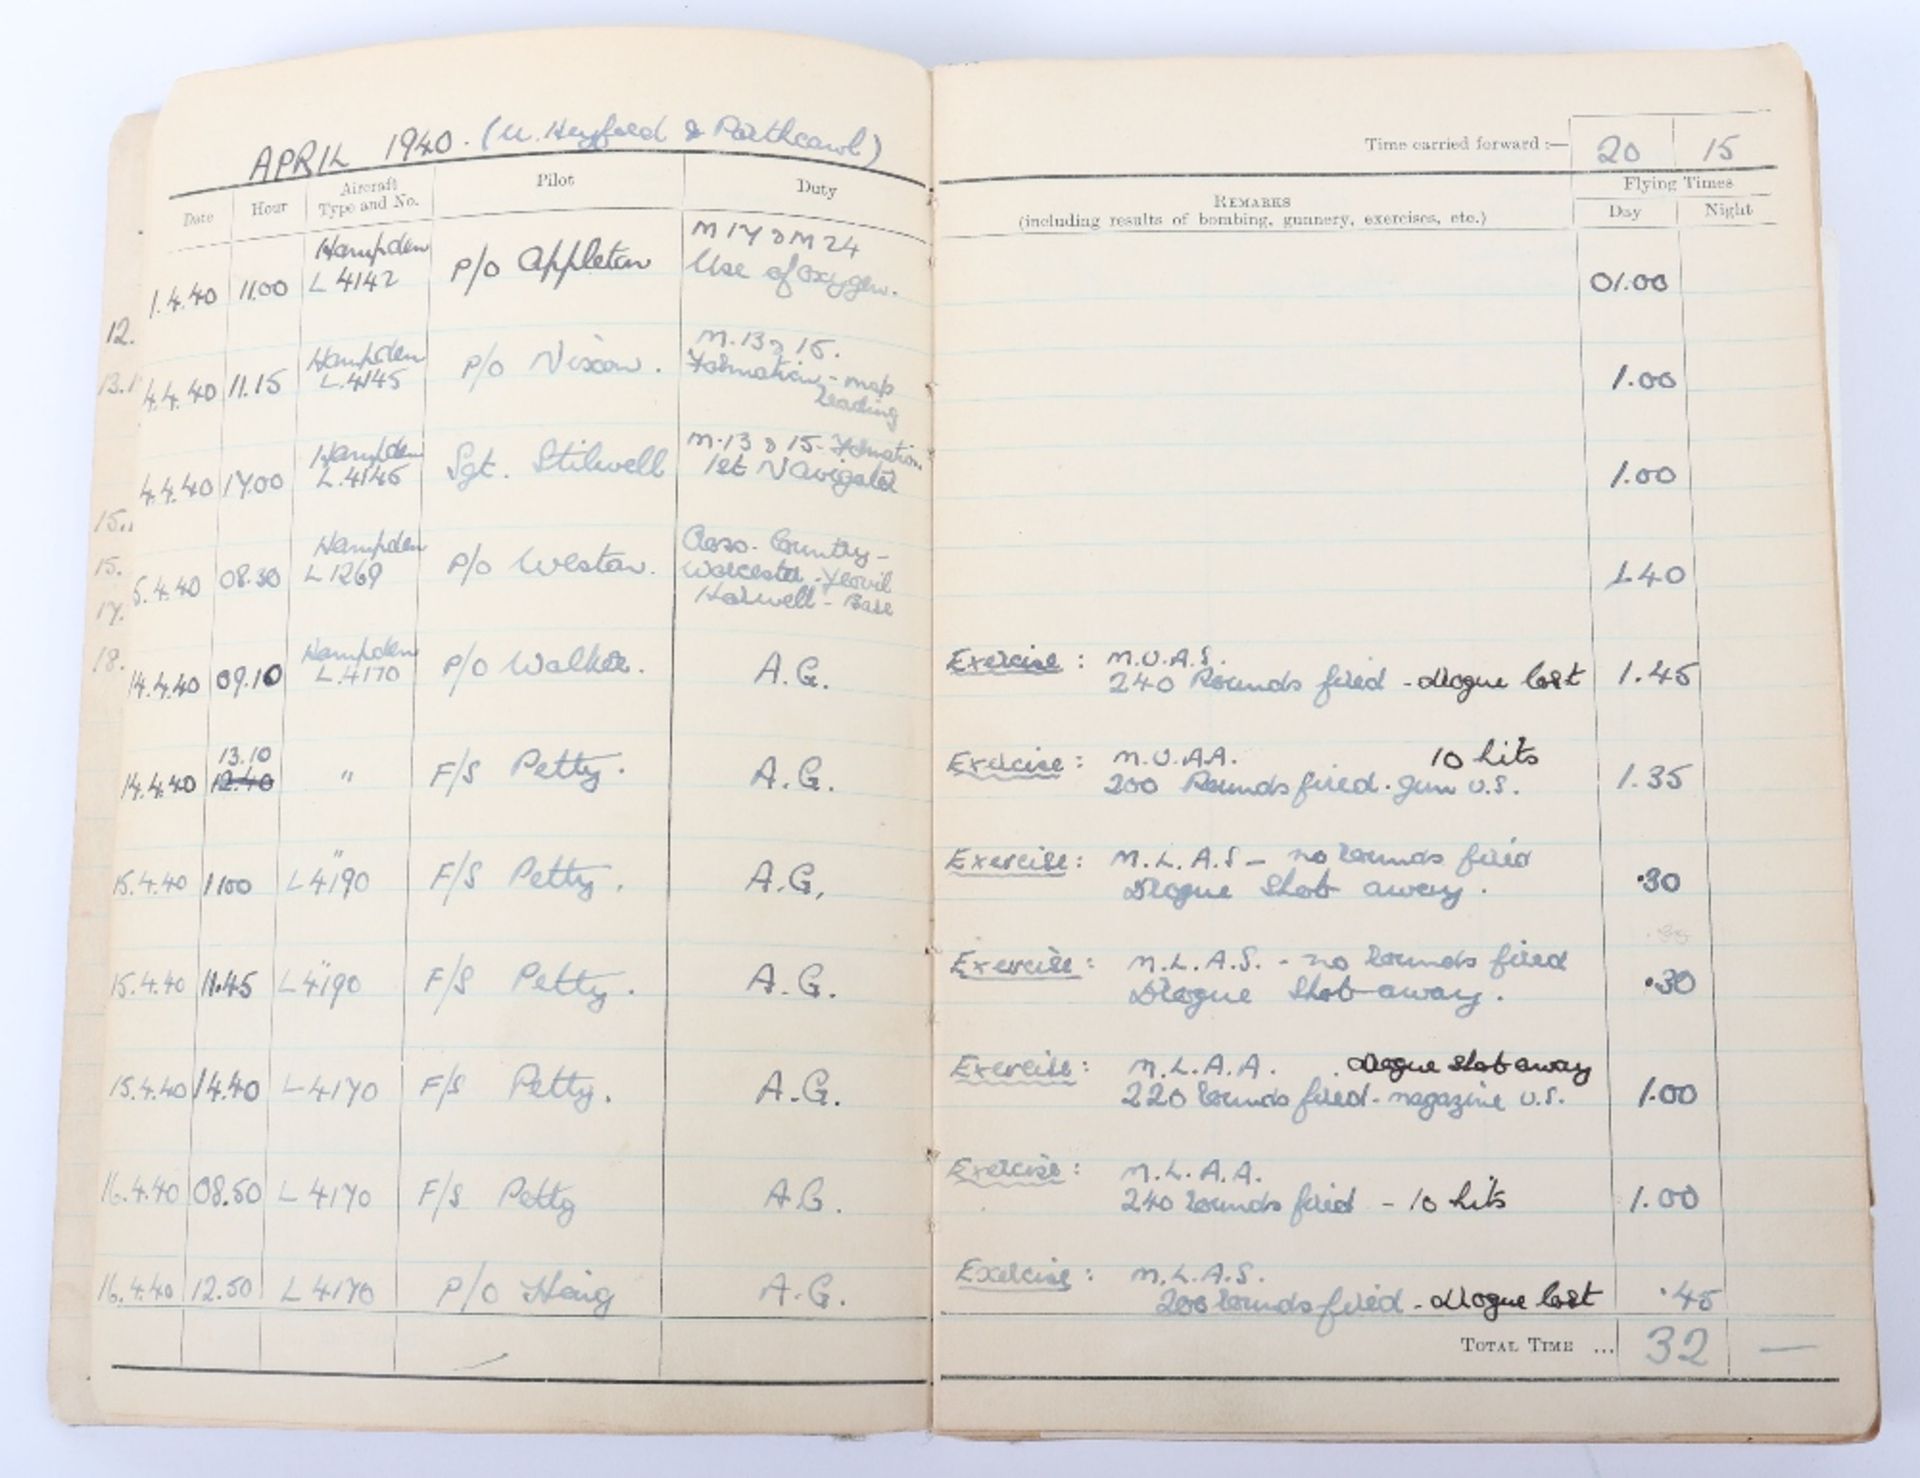 APRIL 1940. (U. Heyford & Porthcawl)
Time carried forward :— 20 15
Date Hour Aircraft Type and No. Pilot Duty
REMARKS
(including results of bombing, gunnery, exercises, etc.)
Flying Times
Day Night
1.4.40 11.00 Hampden L 4142 P/O Appleton M 17 & M 24
Use of oxygen. 01.00
12.
4.4.40 11.15 Hampden L.4145 P/O Nixon. M.13 & 15.
Formation - map
reading 1.00
13.1
4.4.40 17.00 Hampden L.4145 Sgt. Stilwell M.13 & 15. Formation
1st Navigator 1.00
15.
5.4.40 08.30 Hampden L 1269 P/O Weston. Cross. Country -
Worcester - Yeovil
Harwell - Base 1.40
15.
17.
18.
14.4.40 09.10 Hampden L.4170 P/O Walker. A.G. Exercise: M.U.A.S.
240 Rounds fired - drogue lost 1.45
14.4.40 13.10 12.40 " F/S Petty. A.G. Exercise: M.U.A.A. 10 hits
200 Rounds fired. gun U.S. 1.35
15.4.40 1100 " L 4190 F/S Petty. A.G. Exercise: M.L.A.S - no rounds fired
Drogue shot away. .30
15.4.40 11.45 " L 4190 F/S Petty. A.G. Exercise: M.L.A.S. - no rounds fired
Drogue shot away. .30
15.4.40 14.40 L 4170 F/S Petty. A.G. Exercise: M.L.A.A. . Drogue shot away
220 rounds fired - magazine U.S. 1.00
16.4.40 08.50 L 4170 F/S Petty A.G. Exercise: M.L.A.A.
240 rounds fired - 10 hits 1.00
16.4.40 12.50 L 4170 P/O Haig A.G. Exercise: M.L.A.S.
200 rounds fired - drogue lost .45
TOTAL TIME ... 32 —